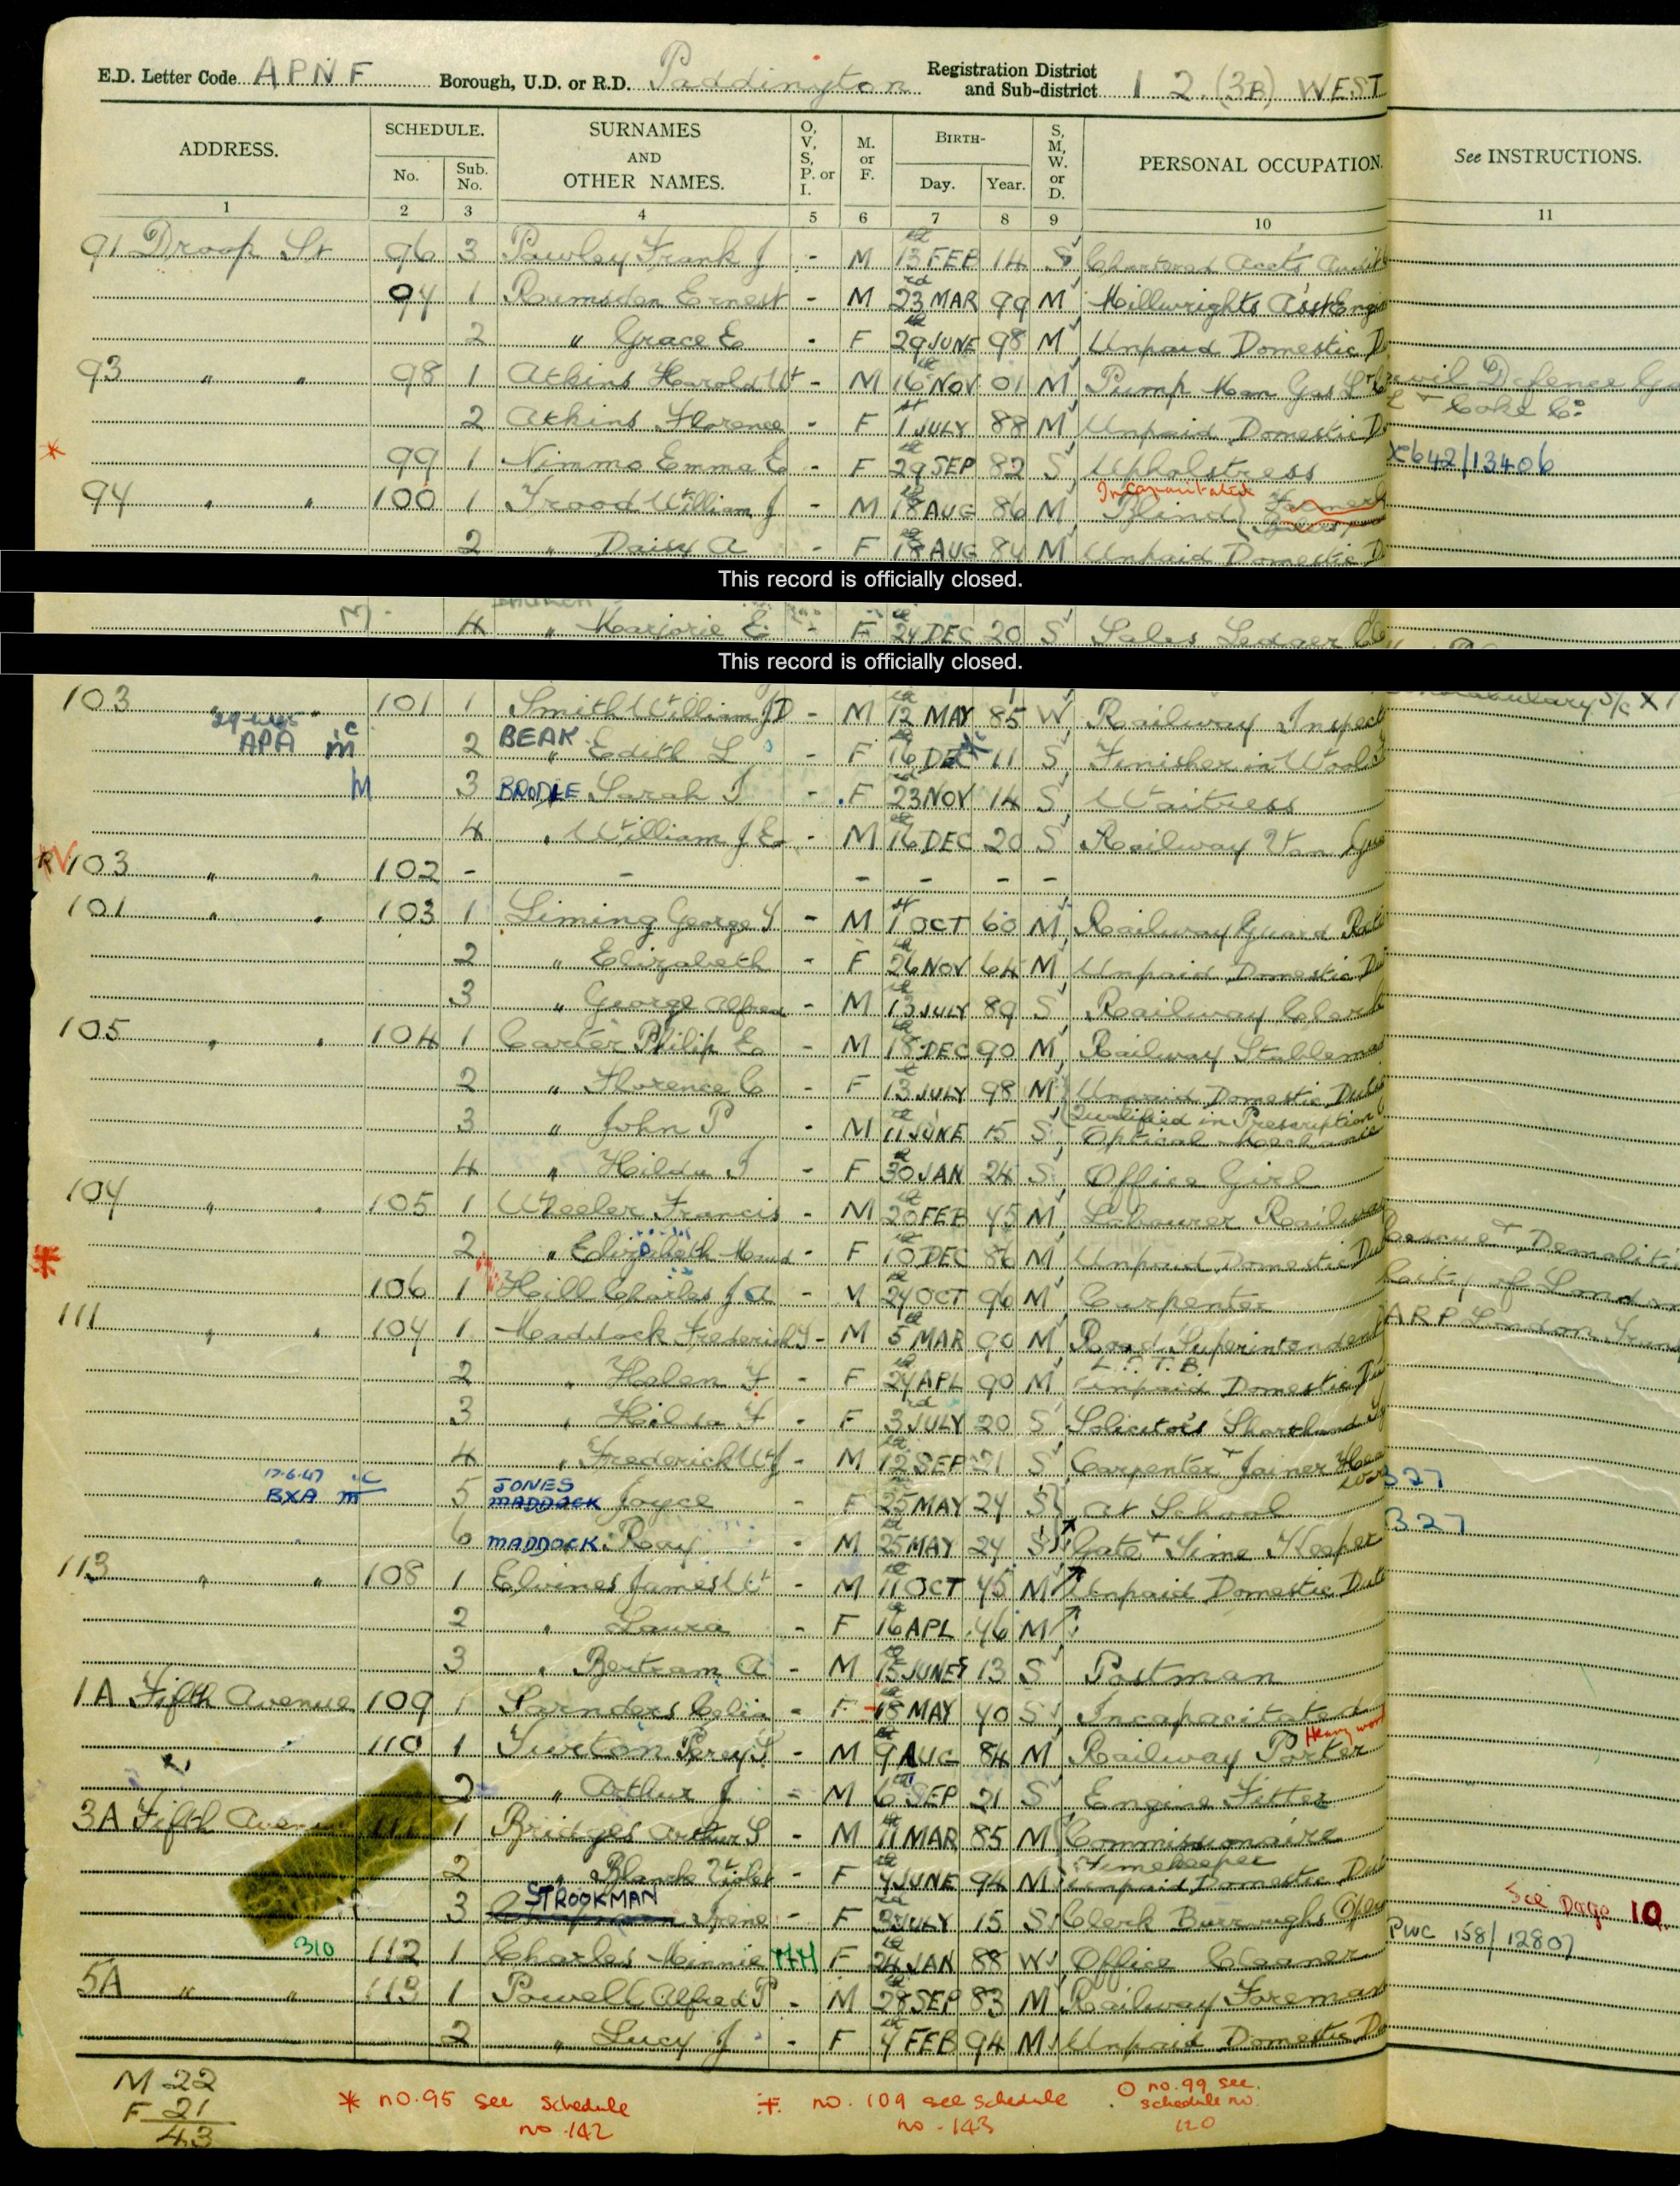 E.D. Letter Code APNF Borough, U.D. or R.D. Paddington Registration District and Sub-district 1 2.(3B) WEST
ADDRESS. SCHEDULE. No. Sub. No. SURNAMES AND OTHER NAMES. O, V, S, P. or I. M. or F. BIRTH- Day. Year. S, M, W. or D. PERSONAL OCCUPATION. See INSTRUCTIONS.
1 2 3 4 5 6 7 8 9 10 11
91 Droop St 96 3 Pawley Frank J - M 13th FEB 14 S Chartered Acct's Audit
97 1 Rumsden Ernest - M 23rd MAR 99 M Millwrights Ass't Engin
2 " Grace E - F 29th JUNE 98 M Unpaid Domestic D
93 " " 98 1 Atkins Harold W - M 16th NOV 01 M Pump Man Gas L & C Civil Defence Ga
2 Atkins Florence - F 1st JULY 88 M Unpaid Domestic D L & Coke Co
* 99 1 Nimmo Emma E - F 29th SEP 82 S Upholstress X642/13406
97 " " 100 1 Frood William J - M 18th AUG 86 M Incapacitated Blind
2 " Daisy A - F 18th AUG 87 M Unpaid Domestic D
This record is officially closed.
M - 4 " Marjorie E - F 27th DEC 20 S Sales Ledger Cle
This record is officially closed.
103 " 101 1 Smith William J D - M 12th MAY 85 W Railway Inspect
APA m c 2 BEAK " Edith L - F 16th DEC 11 S Finisher in Wool
M 3 BRODIE Sarah J - F 23rd NOV 14 S Waitress
4 " William J E - M 16th DEC 20 S Railway Van Gua
103 " " 102 - - - - - -
101 " " 103 1 Liming George T - M 1st OCT 60 M Railway Guard Reti
2 " Elizabeth - F 26th NOV 64 M Unpaid Domestic Du
3 " George Alfred - M 13th JULY 89 S Railway Clerk
105 " " 104 1 Carter Philip E - M 18th DEC 90 M Railway Stableman
2 " Florence C - F 13th JULY 98 M Unpaid Domestic Duties
3 " John P - M 11th JUNE 15 S Qualified in Prescription Optical Mechanic
4 " Hilda I - F 30th JAN 24 S Office Girl
107 " " 105 1 Wheeler Francis - M 20th FEB 75 M Labourer Railway
2 " Elizabeth Maud - F 10th DEC 86 M Unpaid Domestic Du Rescue & Demoliti
* 106 1 Hill Charles J A - M 27th OCT 96 M Carpenter City of London
111 " " 107 1 Maddock Frederick J - M 5th MAR 90 M Road Superintendent L.P.T.B. ARP London Trans
2 " Helen F - F 27th APL 90 M Unpaid Domestic Du
3 " Hilda F - F 3rd JULY 20 S Solicitor's Shorthand Ty
4 " Frederick W J - M 12th SEP 21 S Carpenter & Joiner
17.6.47 BXA m c 5 JONES MADDOCK Joyce - F 25th MAY 24 S At School B27
6 MADDOCK Roy - M 25th MAY 27 S Gate & Time Keeper B27
113 " " 108 1 Elvines James W - M 11th OCT 75 M Unpaid Domestic Dut
2 " Laura - F 16th APL 76 M
3 " Bertram A - M 15th JUNE 13 S Postman
1A Fifth Avenue 109 1 Sarnders Celia - F 18th MAY 70 S Incapacitated
110 1 Turton Percy S - M 9th AUG 84 M Railway Porter Heavy work
2 " Arthur J - M 6th SEP 21 S Engine Fitter
3A Fifth Avenue 111 1 Bridges Arthur S - M 11th MAR 85 M Commissionaire Timekeeper
2 " Blanche Violet - F 4th JUNE 94 M Unpaid Domestic Dut
3 STROOKMAN Irene - F JULY 15 S Clerk Burroughs Oper See Page 10
310 112 1 Charles Minnie HH F 24th JAN 88 W Office Cleaner PWC 158/12807
5A " " 113 1 Powell Alfred P - M 28th SEP 83 M Railway Foreman
2 " Lucy J - F 7th FEB 94 M Unpaid Domestic Du
M 22
F 21
43
* no. 95 see schedule no. 142
no. 109 see schedule no. 143
no. 99 see. schedule no. 120